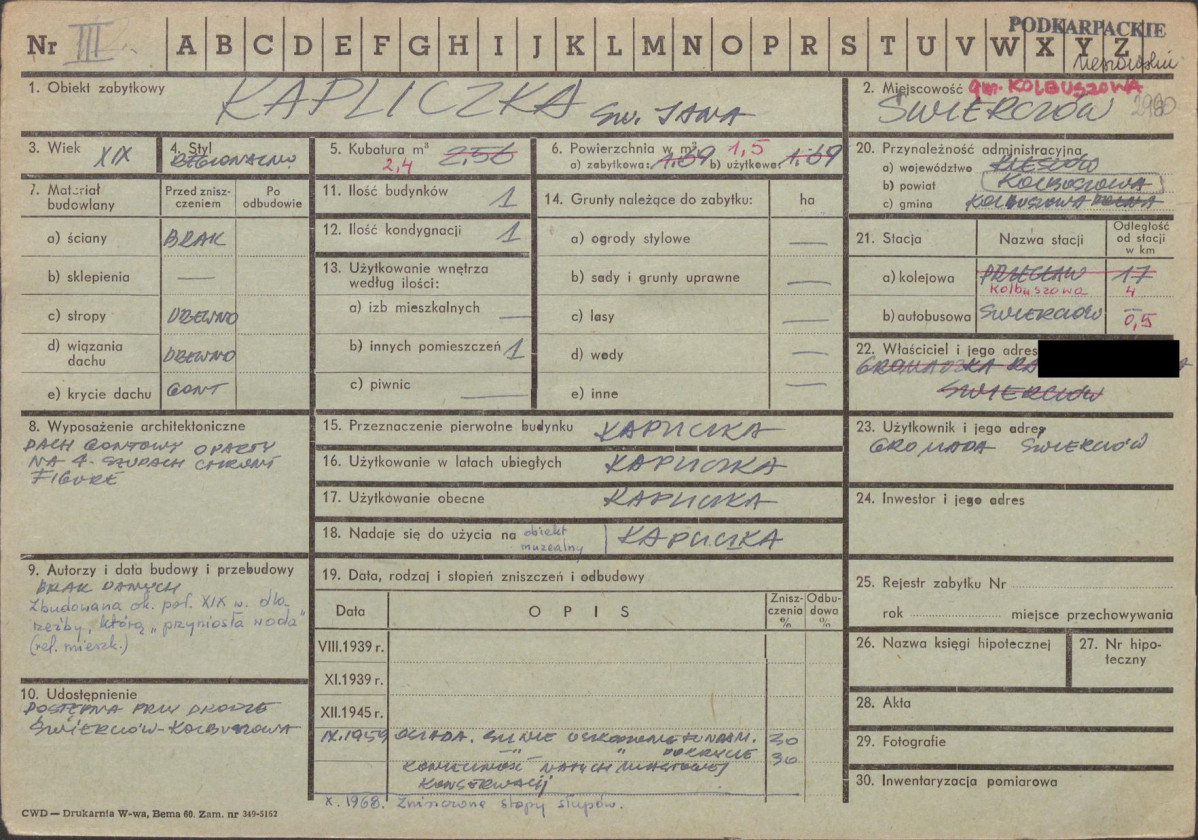 PODKARPACKIE
Nr III A B C D E F G H I J K L M N O P R S T U V W X Y Z
1. Obiekt zabytkowy
KAPLICZKA ŚW. JANA
2. Miejscowość gm. KOLBUSZOWA
ŚWIERCZÓW 2980
3. Wiek XIX
4. Styl
REGIONALNO
5. Kubatura m³ 2,56
2,4
6. Powierzchnia w m² 1,5
a) zabytkowa: 1.69 b) użytkowa: 1.69
20. Przynależność administracyjna
a) województwo RZESZÓW
b) powiat KOLBUSZOWA
c) gmina KOLBUSZOWA DOLNA
7. Materiał budowlany
Przed znisz-czeniem
Po odbudowie
a) ściany BRAK
b) sklepienia —
c) stropy DREWNO
d) wiązania dachu DREWNO
e) krycie dachu GONT
11. Ilość budynków 1
12. Ilość kondygnacji 1
13. Użytkowanie wnętrza
według ilości:
a) izb mieszkalnych —
b) innych pomieszczeń 1
c) piwnic —
14. Grunty należące do zabytku: ha
a) ogrody stylowe —
b) sady i grunty uprawne —
c) lasy —
d) wody —
e) inne
21. Stacja Nazwa stacji Odległość od stacji w km
a) kolejowa PRZECŁAW 17
Kolbuszowa 4
b) autobusowa ŚWIERCZÓW 0,5
22. Właściciel i jego adres
GROMADZKA RA
ŚWIERCZÓW
8. Wyposażenie architektoniczne
DACH GONTOWY OPARTY
NA 4 SŁUPACH CHRONI
FIGURĘ
15. Przeznaczenie pierwotne budynku KAPLICZKA
16. Użytkowanie w latach ubiegłych KAPLICZKA
17. Użytkowanie obecne KAPLICZKA
18. Nadaje się do użycia na obiekt muzealny KAPLICZKA
23. Użytkownik i jego adres
GROMADA ŚWIERCZÓW
24. Inwestor i jego adres
9. Autorzy i data budowy i przebudowy
BRAK DANYCH
Zbudowana ok. poł. XIX w. dla
rzeźby, którą „przyniosła woda"
(rel. mieszk.)
10. Udostępnienie
DOSTĘPNA PRZY DRODZE
ŚWIERCZÓW-KOLBUSZOWA
19. Data, rodzaj i stopień zniszczeń i odbudowy
Data OPIS Znisz-czenia % Odbu-dowa %
VIII.1939 r.
XI.1939 r.
XII.1945 r.
IX.1959 OSIADA. SILNIE USZKODZONE FUNDAM. 30
—"— " POKRYCIE 30
KONIECZNOŚĆ NATYCHMIASTOWEJ
KONSERWACJI
X. 1968. Zniszczone stopy słupów.
25. Rejestr zabytku Nr
rok miejsce przechowywania
26. Nazwa księgi hipotecznej
27. Nr hipo-teczny
28. Akta
29. Fotografie
30. Inwentaryzacja pomiarowa
CWD — Drukarnia W-wa, Bema 60. Zam. nr 349-5162